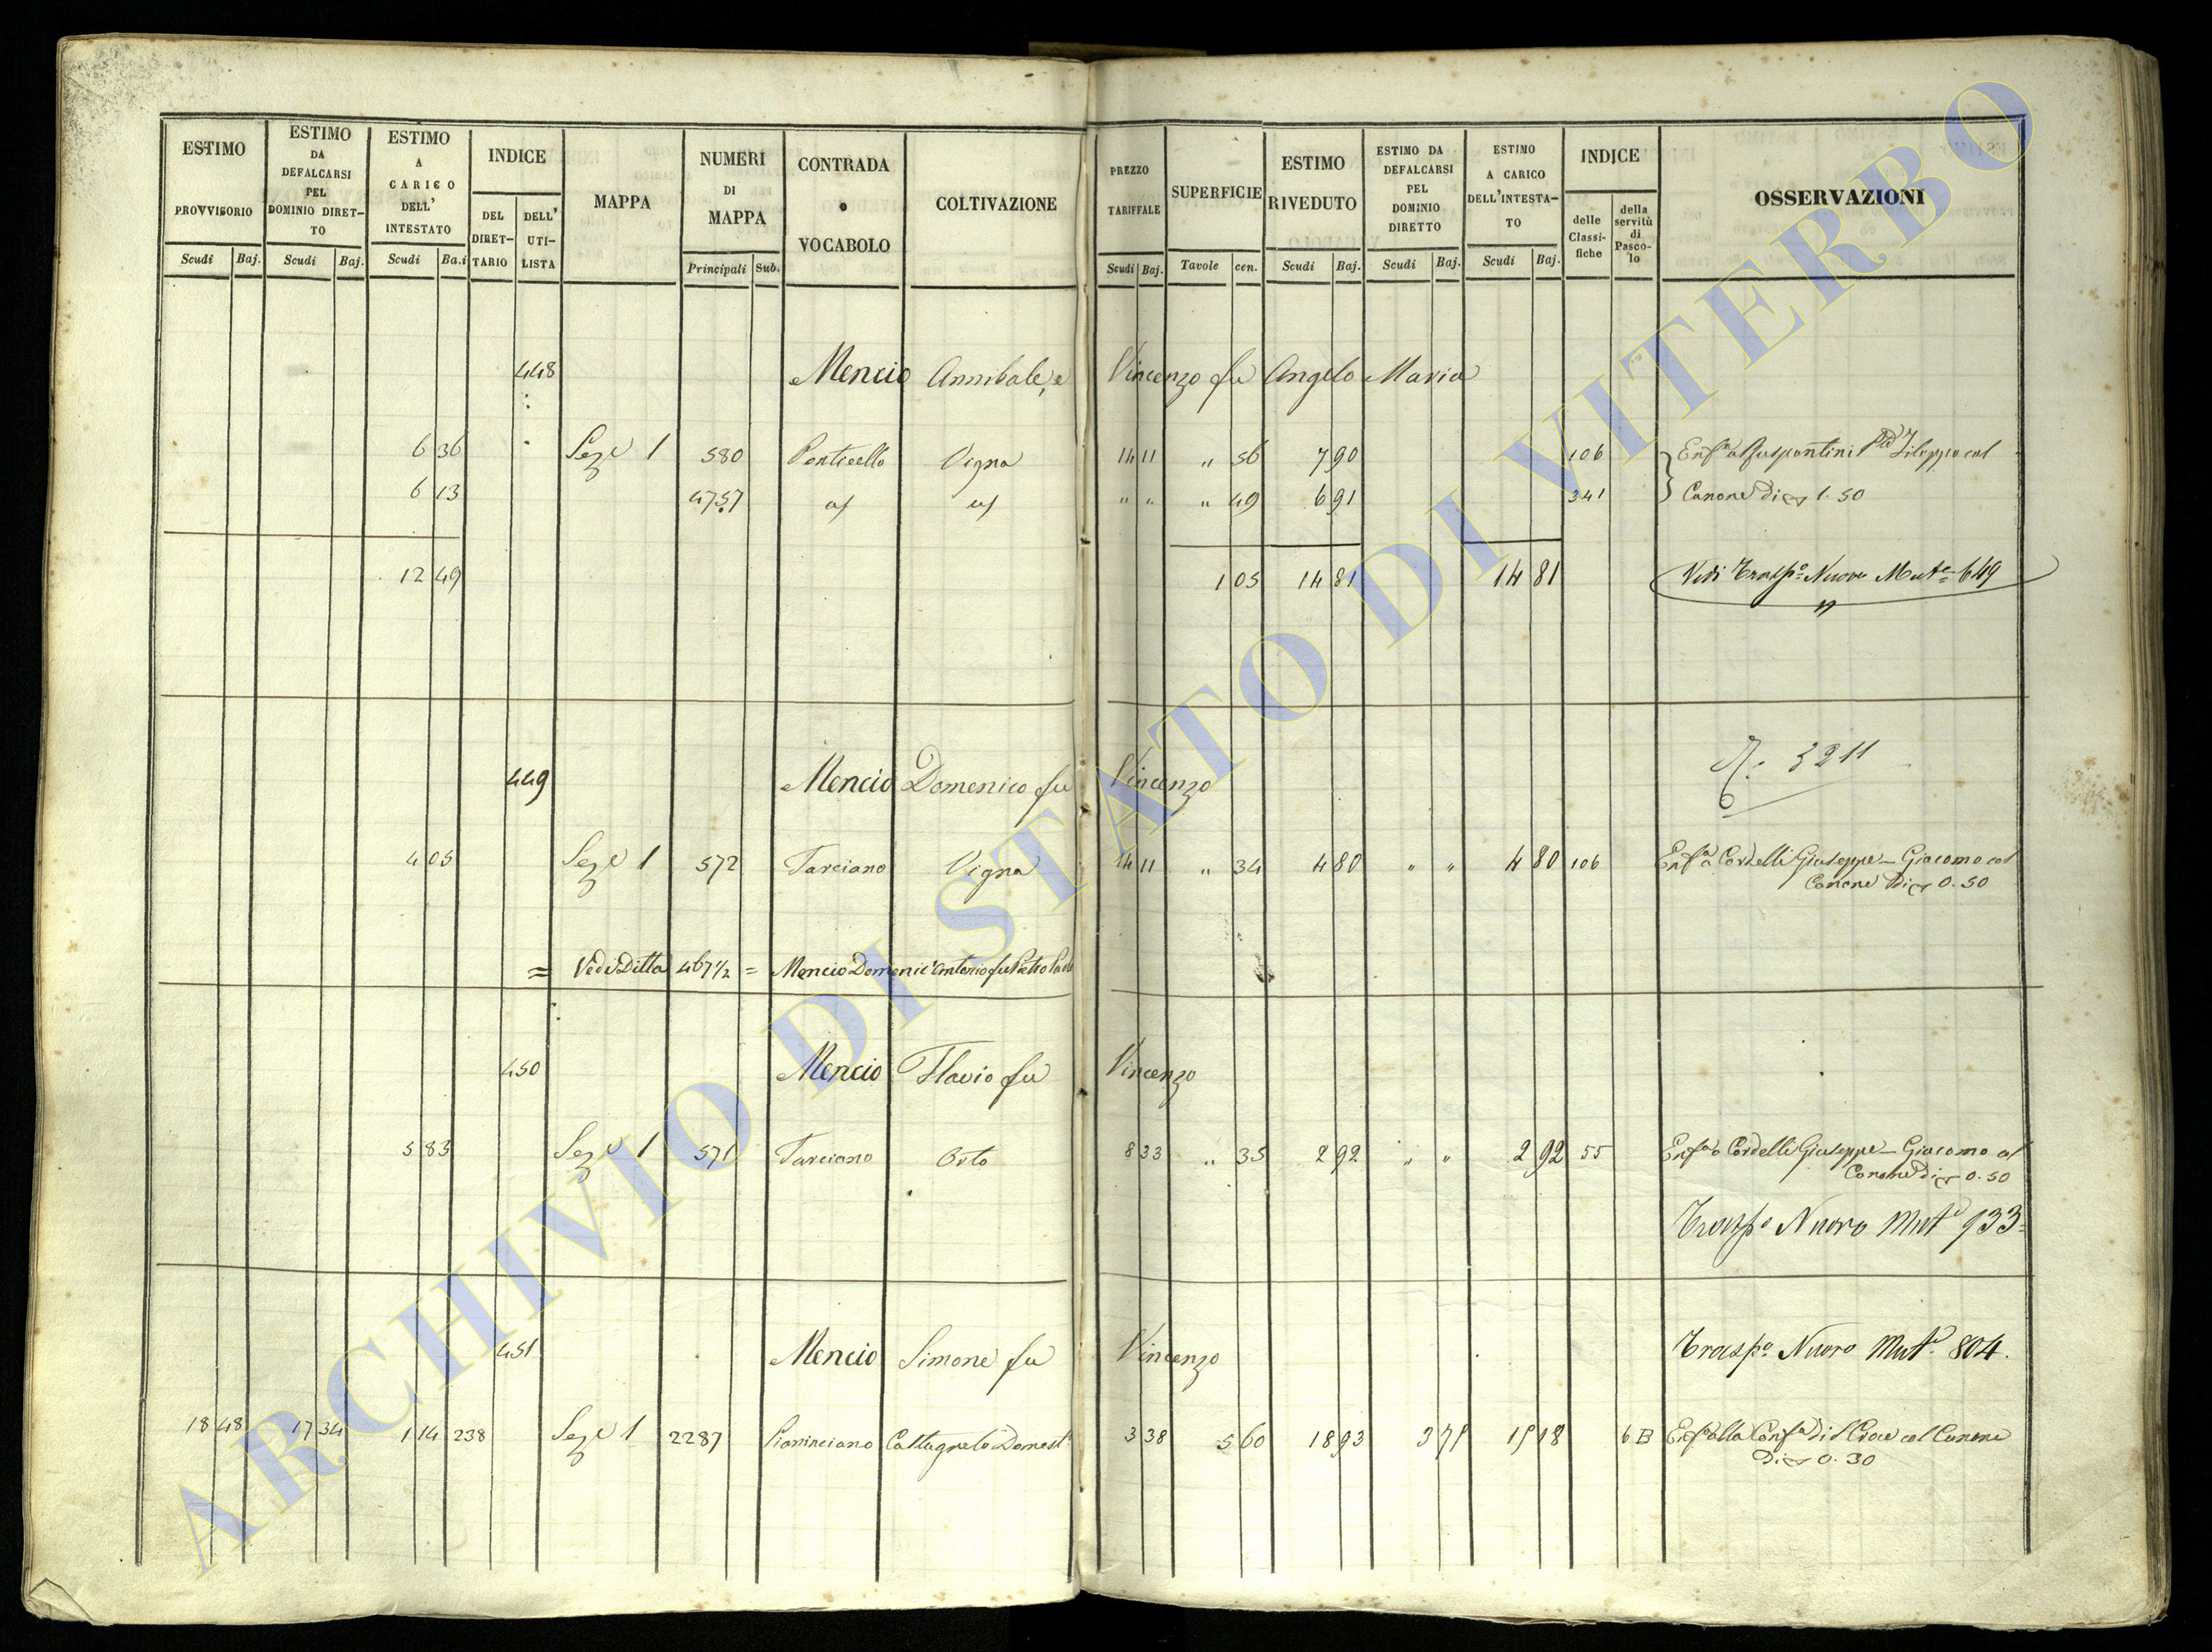 ESTIMO PROVVISORIO Scudi Baj.
ESTIMO DA DEFALCARSI PEL DOMINIO DIRETTO Scudi Baj.
ESTIMO A CARICO DELL' INTESTATO Scudi Ba.i
INDICE DEL DIRETTARIO DELL' UTILISTA
MAPPA
NUMERI DI MAPPA Principali Sub.
CONTRADA o VOCABOLO
COLTIVAZIONE
PREZZO TARIFFALE Scudi Baj.
SUPERFICIE Tavole cen.
ESTIMO RIVEDUTO Scudi Baj.
ESTIMO DA DEFALCARSI PEL DOMINIO DIRETTO Scudi Baj.
ESTIMO A CARICO DELL'INTESTATO Scudi Baj.
INDICE delle Classifiche della servitù di Pascolo
OSSERVAZIONI
448 Mencio Annibale, e Vincenzo fu Angelo Maria
6 36 Sez.e 1 580 Ponticello Vigna 14 11 " 56 7 90 106 Enf.a Filippo col
6 13 4757 " " " 49 6 91 341 Canone di 1.50
12 49 1 05 14 81 14 81 Vedi Trasp.o Nuovo Mut.e 649
449 Mencio Domenico fu Vincenzo 3211
4 05 Sez.e 1 572 Tarciano Vigna 14 11 " 34 4 80 " " 4 80 106 Enf.a a Cordelli Giuseppe - Giacomo col
Canone di 0.50
= Vedi Ditta 467 1/2 = Mencio Domenic'Antonio fu Pietro Paolo
450 Mencio Flavio fu Vincenzo
5 83 Sez.e 1 571 Tarciano Orto 8 33 " 35 2 92 " " 2 92 55 Enf.a a Cordelli Giuseppe - Giacomo col
Canone di 0.50
Trasp.o Nuovo Mut.e 933
451 Mencio Simone fu Vincenzo Trasp.o Nuovo Mut.e 804.
18 48 17 34 1 14 238 Sez.e 1 2287 Pianinciano Castagneto Domest.o 3 38 5 60 18 93 3 75 15 18 6 B Enf.a alla Conf.a di S Croce col Canone
di 0.30
ARCHIVIO DI STATO DI VITERBO